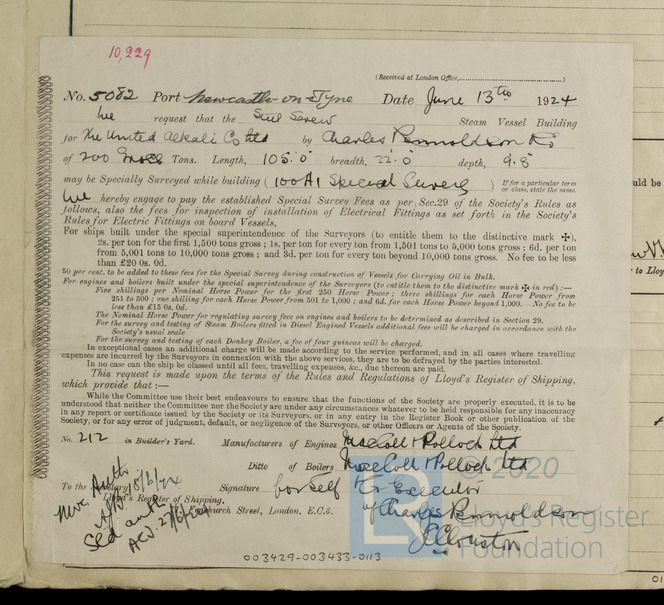 10,229
(Received at London Office,............)
No. 5082 Port Newcastle-on-Tyne Date June 13th 1924
We request that the Steel Screw Steam Vessel Building
for The United Alkali Co Ltd by Charles Rennoldson & Co
of 200 Gross Tons. Length, 105'.0" breadth, 22'.0" depth, 9'.8"
may be Specially Surveyed while building (100A1 Special Survey) If for a particular term
or class, state the same.
We hereby engage to pay the established Special Survey Fees as per, Sec. 29 of the Society's Rules as
follows, also the fees for inspection of installation of Electrical Fittings as set forth in the Society's
Rules for Electric Fittings on board Vessels,
For ships built under the special superintendence of the Surveyors (to entitle them to the distinctive mark ✠),
2s. per ton for the first 1,500 tons gross; 1s. per for every ton from 1,501 tons to 5,000 tons gross; 6d. per ton
from 5,001 tons to 10,000 tons gross; and 3d. per ton for every ton beyond 10,000 tons gross. No fee to be less
than £20 0s. 0d.
50 per cent. to be added to these fees for the Special Survey during construction of Vessels for Carrying Oil in Bulk.
For engines and boilers built under the special superintendence of the Surveyors (to entitle them to the distinctive mark ✠ in red) :—
Five shillings per Nominal Horse Power for the first 250 Horse Power; three shillings for each Horse Power from
251 to 500; one shilling for each Horse Power from 501 to 1,000; and 6d. for each Horse Power beyond 1,000. No fee to be
less than £15 0s. 0d.
The Nominal Horse Power for regulating survey fees on engines and boilers to be determined as described in Section 29.
For the survey and testing of Steam Boilers fitted in Diesel Engined Vessels additional fees will be charged in accordance with the
Society's usual scale
For the survey and testing of each Donkey Boiler, a fee of four guineas will be charged.
In exceptional cases an additional charge will be made according to the service performed, and in all cases where travelling
expenses are incurred by the Surveyors in connexion with the above services, they are to be defrayed by the parties interested.
In no case can the ship be classed until all fees, travelling expenses, &c., due thereon are paid.
This request is made upon the terms of the Rules and Regulations of Lloyd's Register of Shipping,
which provide that :—
While the Committee use their best endeavours to ensure that the functions of the Society are properly executed, it is to be
understood that neither the Committee nor the Society are under any circumstances whatever to be held responsible for any inaccuracy
in any report or certificate issued by the Society or its Surveyors, or in any entry in the Register Book or other publication of the
Society, or for any error of judgment, default, or negligence of the Surveyors, or other Officers or Agents of the Society.
No. 212 in Builder's Yard. Manufacturers of Engines MacColl & Pollock Ltd
Ditto of Boilers MacColl & Pollock Ltd
To the Signature for Self & Co Executor
Lloyd's Register of Shipping,
Fenchurch Street, London, E.C.3. of Charles Rennoldson
© 2020
Lloyd's Register
Foundation
003429-003433-0113
uld be
to Lloy